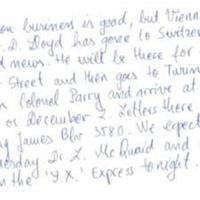 on business is good, but Vienna
D. Lloyd has gone to Switze
d news. He will be there for
Street and then goes to Turin
n Colonel Parry and arrive at
or December 2. Letters there
g James Blv 3580. We expect
uesday. Dr. L. McQuaid and
n the 'Y.X.' Express tonight.